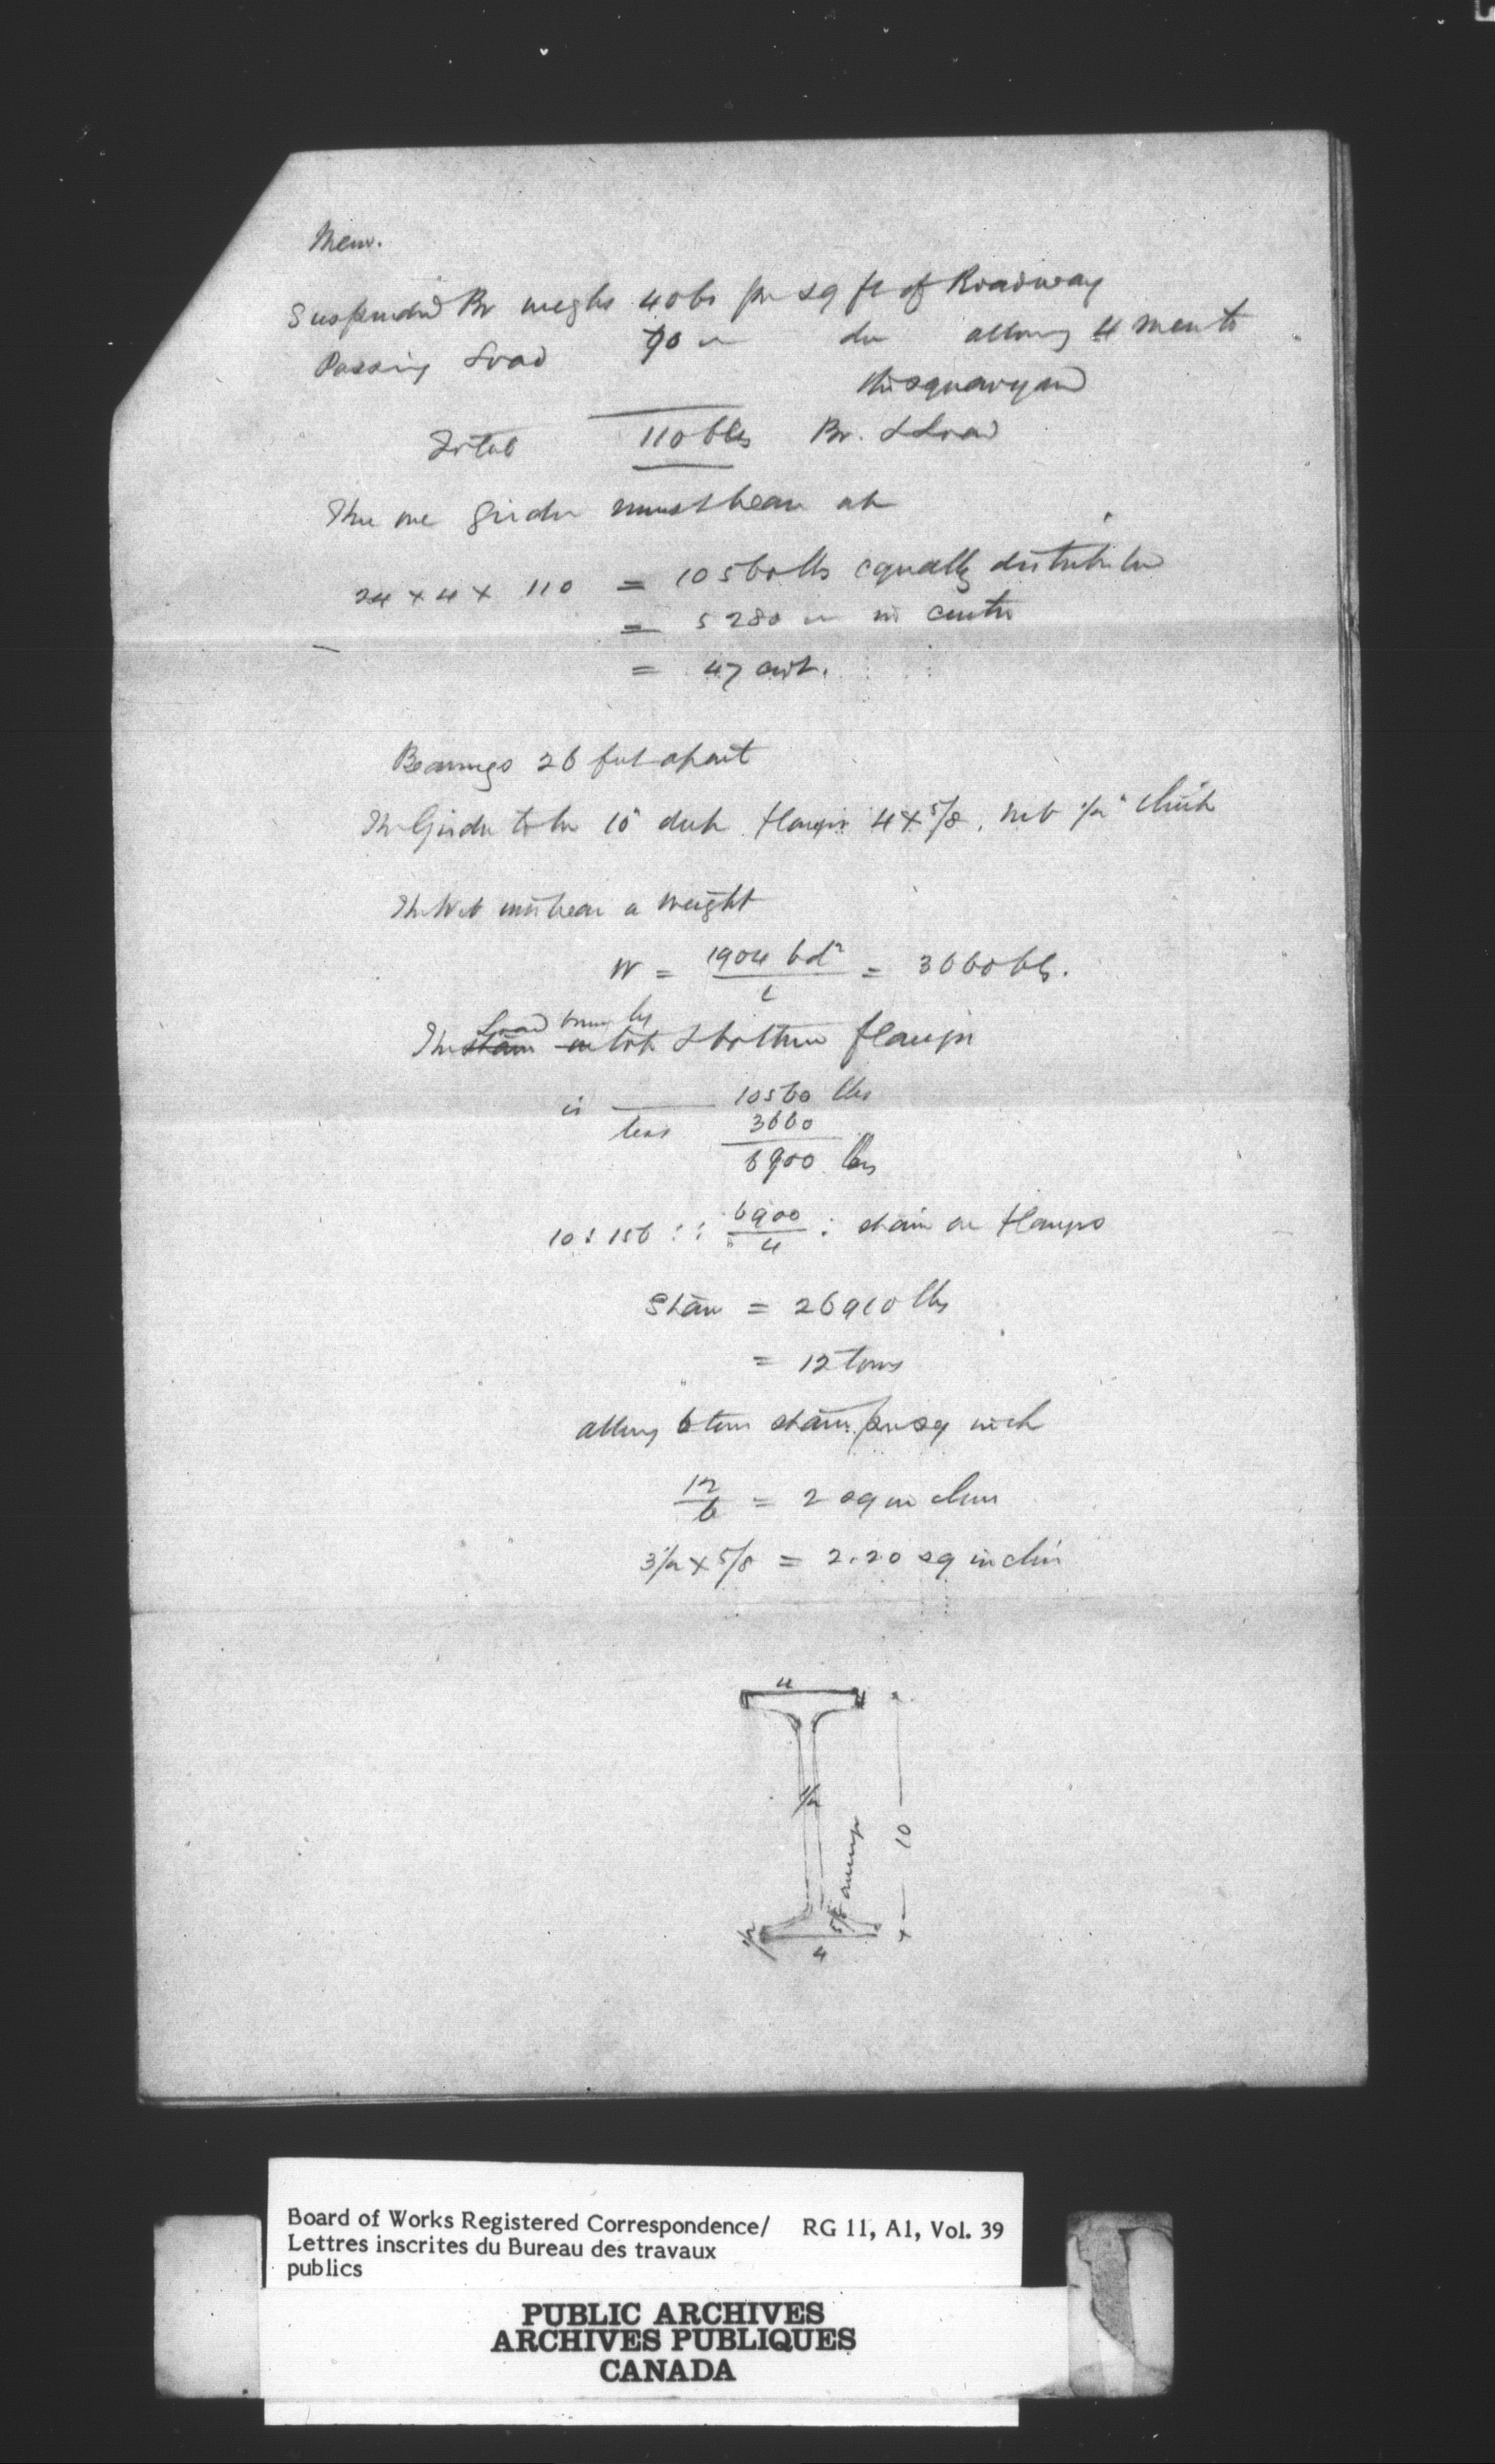 Mem.
Suspended Br weighs 40 lbs per sq ft of Roadway
Passing Load 70 " do allowing 4 men to
the square yard
Total 110 lbs Br. & Load
The one girder must bear
24 × 4 × 110 = 10560 lbs equally distributed
= 5280 " in centre
= 47 cwt.
Bearings 26 feet apart
The Girder to be 10" deep flanges 4 × 5/8. web 1/2" thick
The Web will bear a weight
W = 1904 bd² / l = 3660 lbs.
Load borne by
The strain on top & bottom flanges
is 10560 lbs
less 3660
6900 lbs
10 : 156 :: 6900/4 : strain on flanges
Strain = 26910 lbs
= 12 tons
allowing 6 tons strain per sq inch
12/6 = 2 sq inches
3 1/2 × 5/8 = 2.20 sq inches
4
1/2
10
5/8 average
1/2
4
Board of Works Registered Correspondence/ RG 11, A1, Vol. 39
Lettres inscrites du Bureau des travaux
publics
PUBLIC ARCHIVES
ARCHIVES PUBLIQUES
CANADA